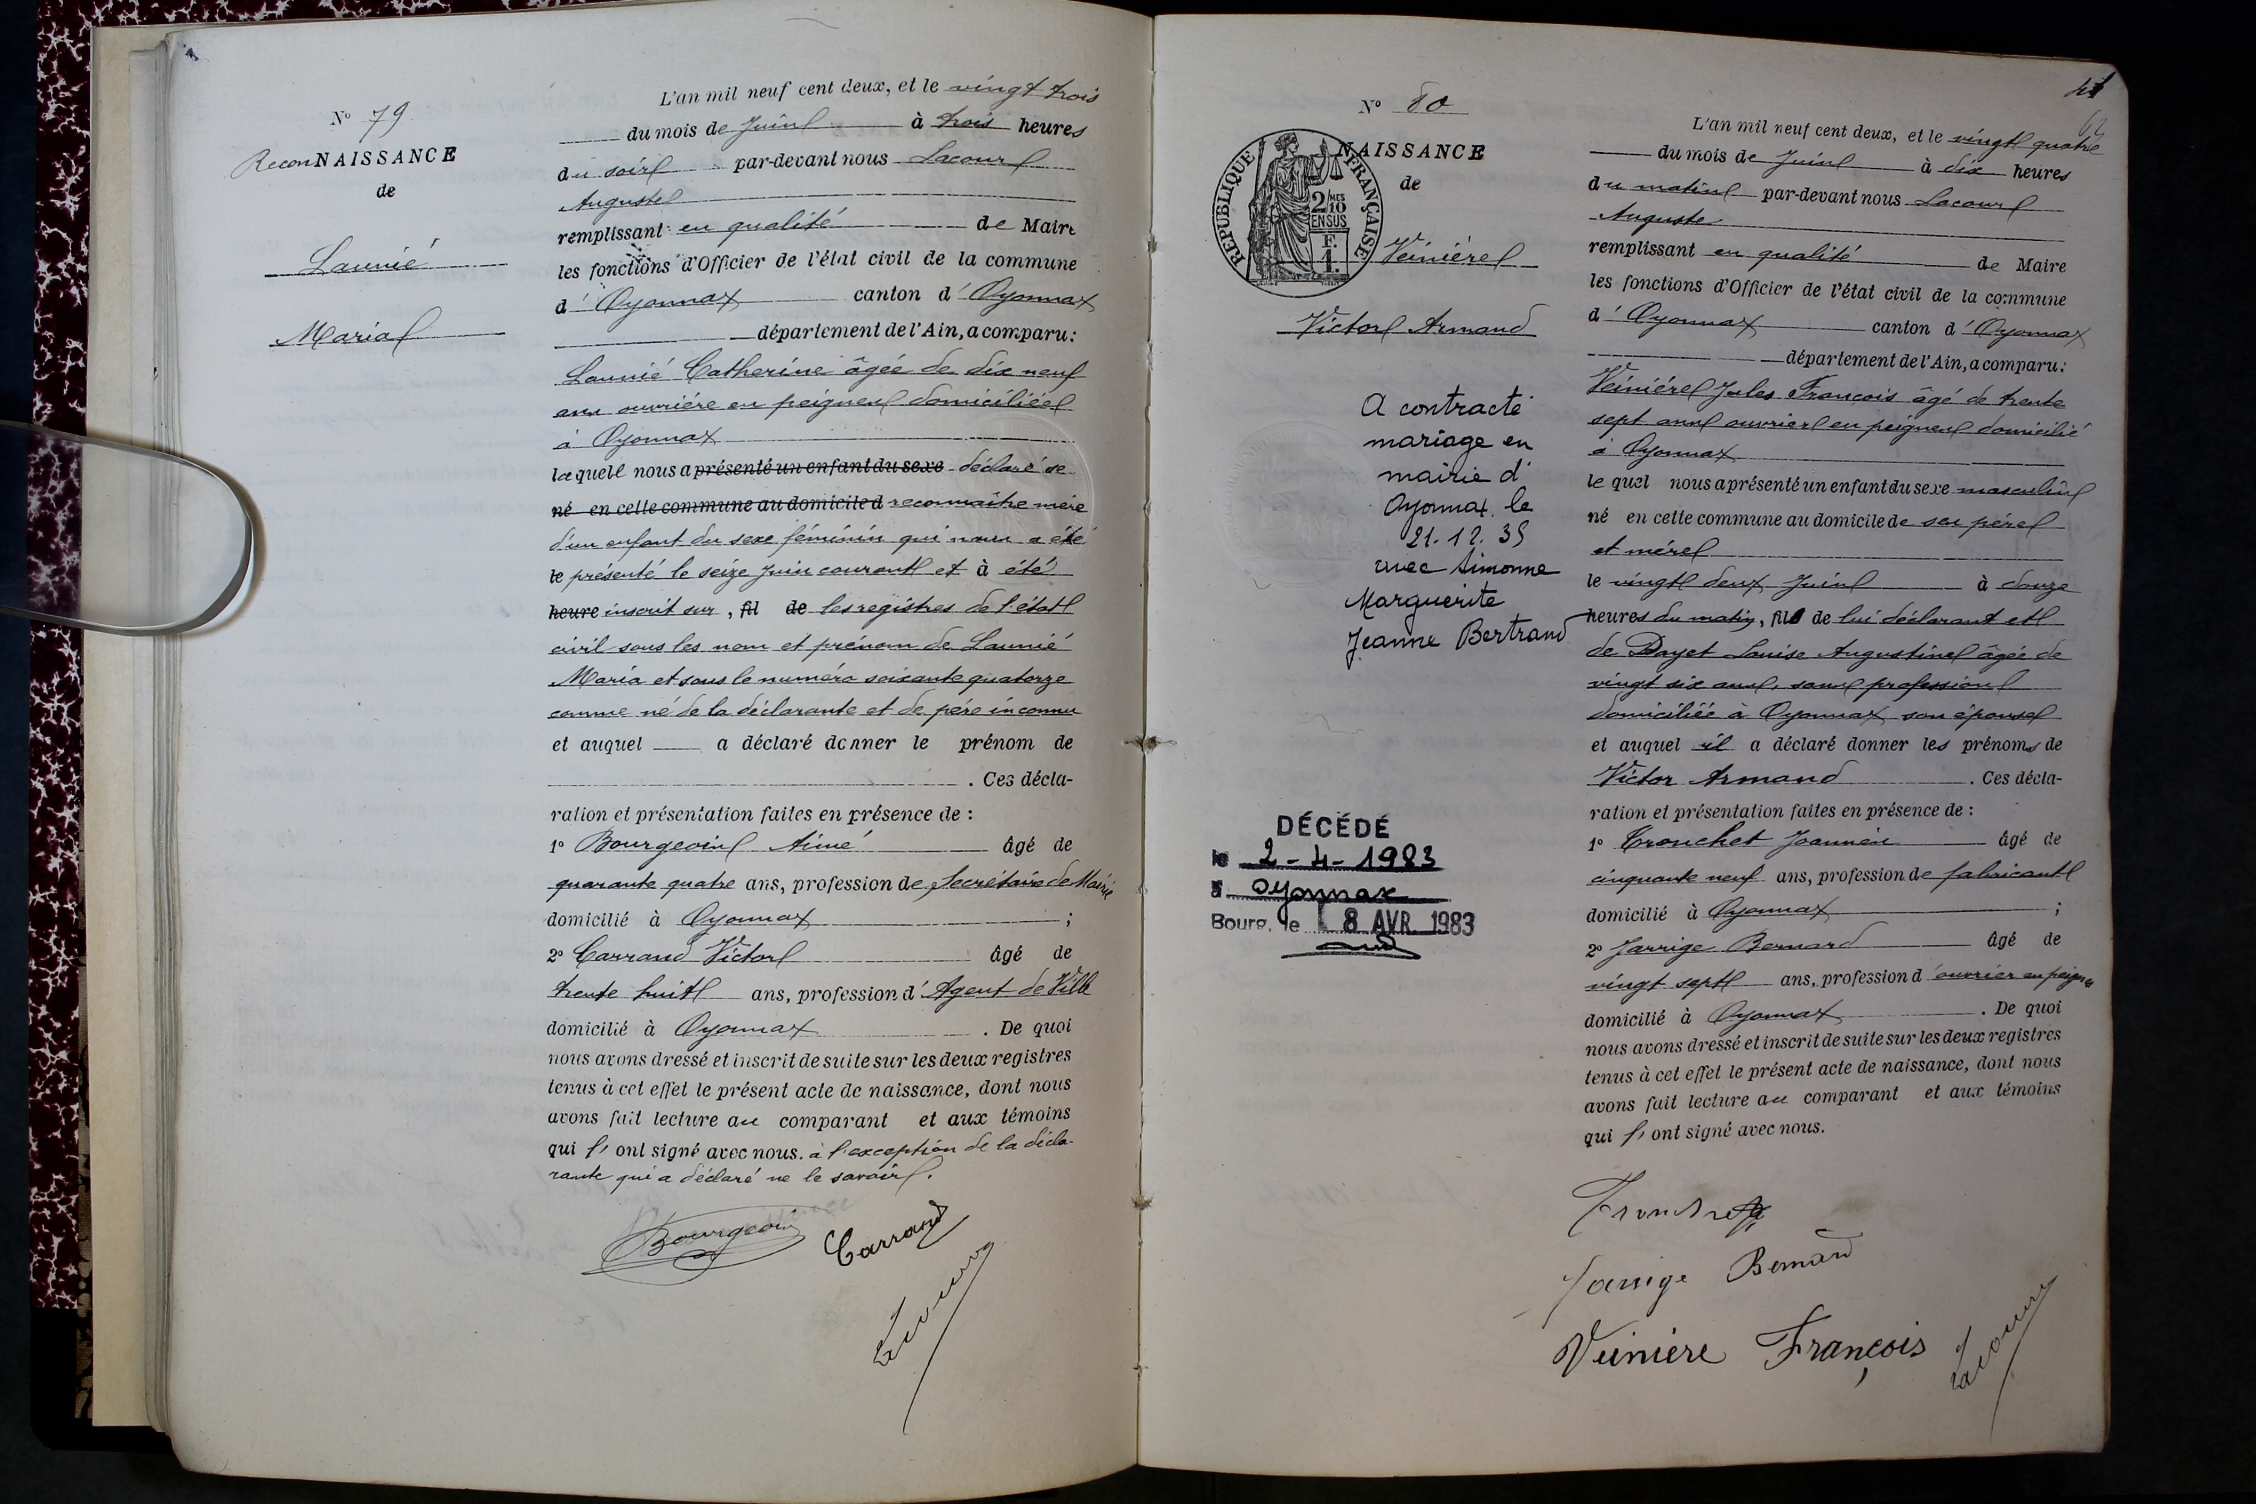 N° 79
ReconNAISSANCE
de
Launié
Maria
L'an mil neuf cent deux, et le vingt trois
du mois de Juin à trois heures
du soir par-devant nous Lacour
Auguste
remplissant en qualité de Maire
les fonctions d'Officier de l'état civil de la commune
d'Oyonnax canton d'Oyonnax
département de l'Ain, a comparu:
Launié Catherine âgée de dix neuf
ans ouvrière en peignes domiciliée
à Oyonnax
laquelle nous a présenté un enfant du sexe déclaré se
né en cette commune au domicile d reconnaître mère
d'un enfant du sexe féminin qui nous a été
le présenté le seize Juin courant et à été
heure inscrit sur, fil de les registres de l'état
civil sous les nom et prénom de Launié
Maria et sous le numéro soixante quatorze
comme né de la déclarante et de père inconnu
et auquel a déclaré donner le prénom de
. Ces décla-
ration et présentation faites en présence de :
1° Bourgeoin Aimé âgé de
quarante quatre ans, profession de Secrétaire de Mairie
domicilié à Oyonnax ;
2° Carrand Victor âgé de
trente huit ans, profession d'Agent de Ville
domicilié à Oyonnax . De quoi
nous avons dressé et inscrit de suite sur les deux registres
tenus à cet effet le présent acte de naissance, dont nous
avons fait lecture au comparant et aux témoins
qui l'ont signé avec nous. à l'exception de la décla-
rante qui a déclaré ne le savoir.
Bourgeoin Carrand
Lacour
N° 80
NAISSANCE
de
RÉPUBLIQUE FRANÇAISE
2/10
EN SUS
F.
1.
Veinière
Victor Armand
A contracté
mariage en
mairie d'
Oyonnax le
21.12.35
avec Simonne
Marguerite
Jeanne Bertrand
DÉCÉDÉ
le 2-4-1983
à Oyonnax
Bourg, le 8 AVR. 1983
41
L'an mil neuf cent deux, et le vingt quatre
du mois de Juin à dix heures
du matin par-devant nous Lacour
Auguste
remplissant en qualité de Maire
les fonctions d'Officier de l'état civil de la commune
d'Oyonnax canton d'Oyonnax
département de l'Ain, a comparu:
Veinière Jules François âgé de trente
sept ans ouvrier en peignes domicilié
à Oyonnax
lequel nous a présenté un enfant du sexe masculin
né en cette commune au domicile de ses père
et mère
le vingt deux Juin à douze
heures du matin, fils de lui déclarant et
de Dayet Louise Augustine âgée de
vingt six ans, sans profession
domiciliée à Oyonnax son épouse
et auquel il a déclaré donner les prénoms de
Victor Armand . Ces décla-
ration et présentation faites en présence de :
1° Tronchet Joannès âgé de
cinquante neuf ans, profession de fabricant
domicilié à Oyonnax ;
2° Jarrige Bernard âgé de
vingt sept ans, profession d'ouvrier en peignes
domicilié à Oyonnax . De quoi
nous avons dressé et inscrit de suite sur les deux registres
tenus à cet effet le présent acte de naissance, dont nous
avons fait lecture au comparant et aux témoins
qui l'ont signé avec nous.
Tronchet
Jarrige Bernard
Veinière François
Lacour